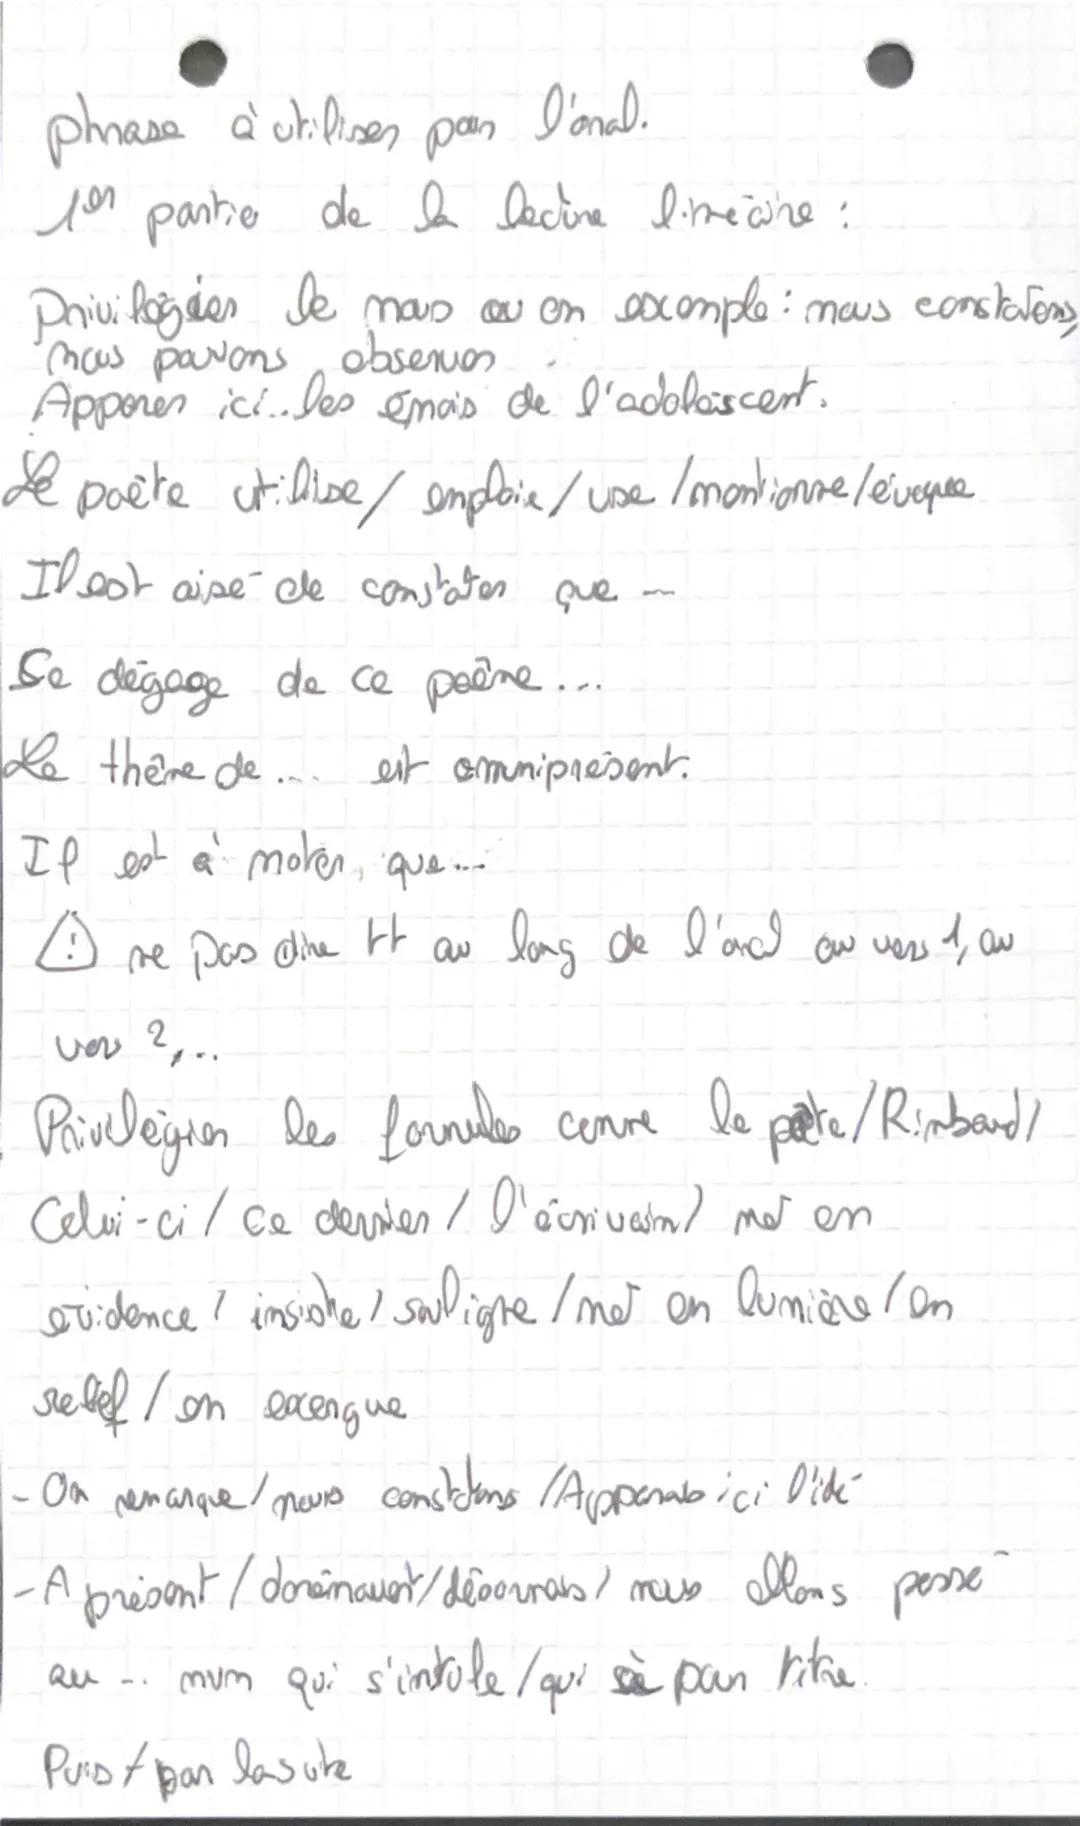 phrase à utiliser pour l'oral.
1er partie de la lecture linéaire :
Privilégier le nous ou on exemple : nous constatons,
nous pouvons observer
Apparer ici... les émois de l'adolescent.
Le poète utilise / emploie / use / mentionne / évoque
Il est aisé de constater que ...
Se dégage de ce poème ...
Le thème de ... est omniprésent.
Il est à noter, que ...
⚠ ne pas dire tt au long de l'oral au vers 1, au
vers 2, ...
Privilégier les formules comme le poète / Rimbaud /
Celui-ci / ce dernier / l'écrivain / met en
évidence / insiste / souligne / met en lumière / en
relief / en exergue
- On remarque / nous constatons / Apparait ici l'idé
- A présent / dorénavant / désormais / nous allons passé
au ... mvm qui s'intule / qui a pour titre.
Puis / par la suite